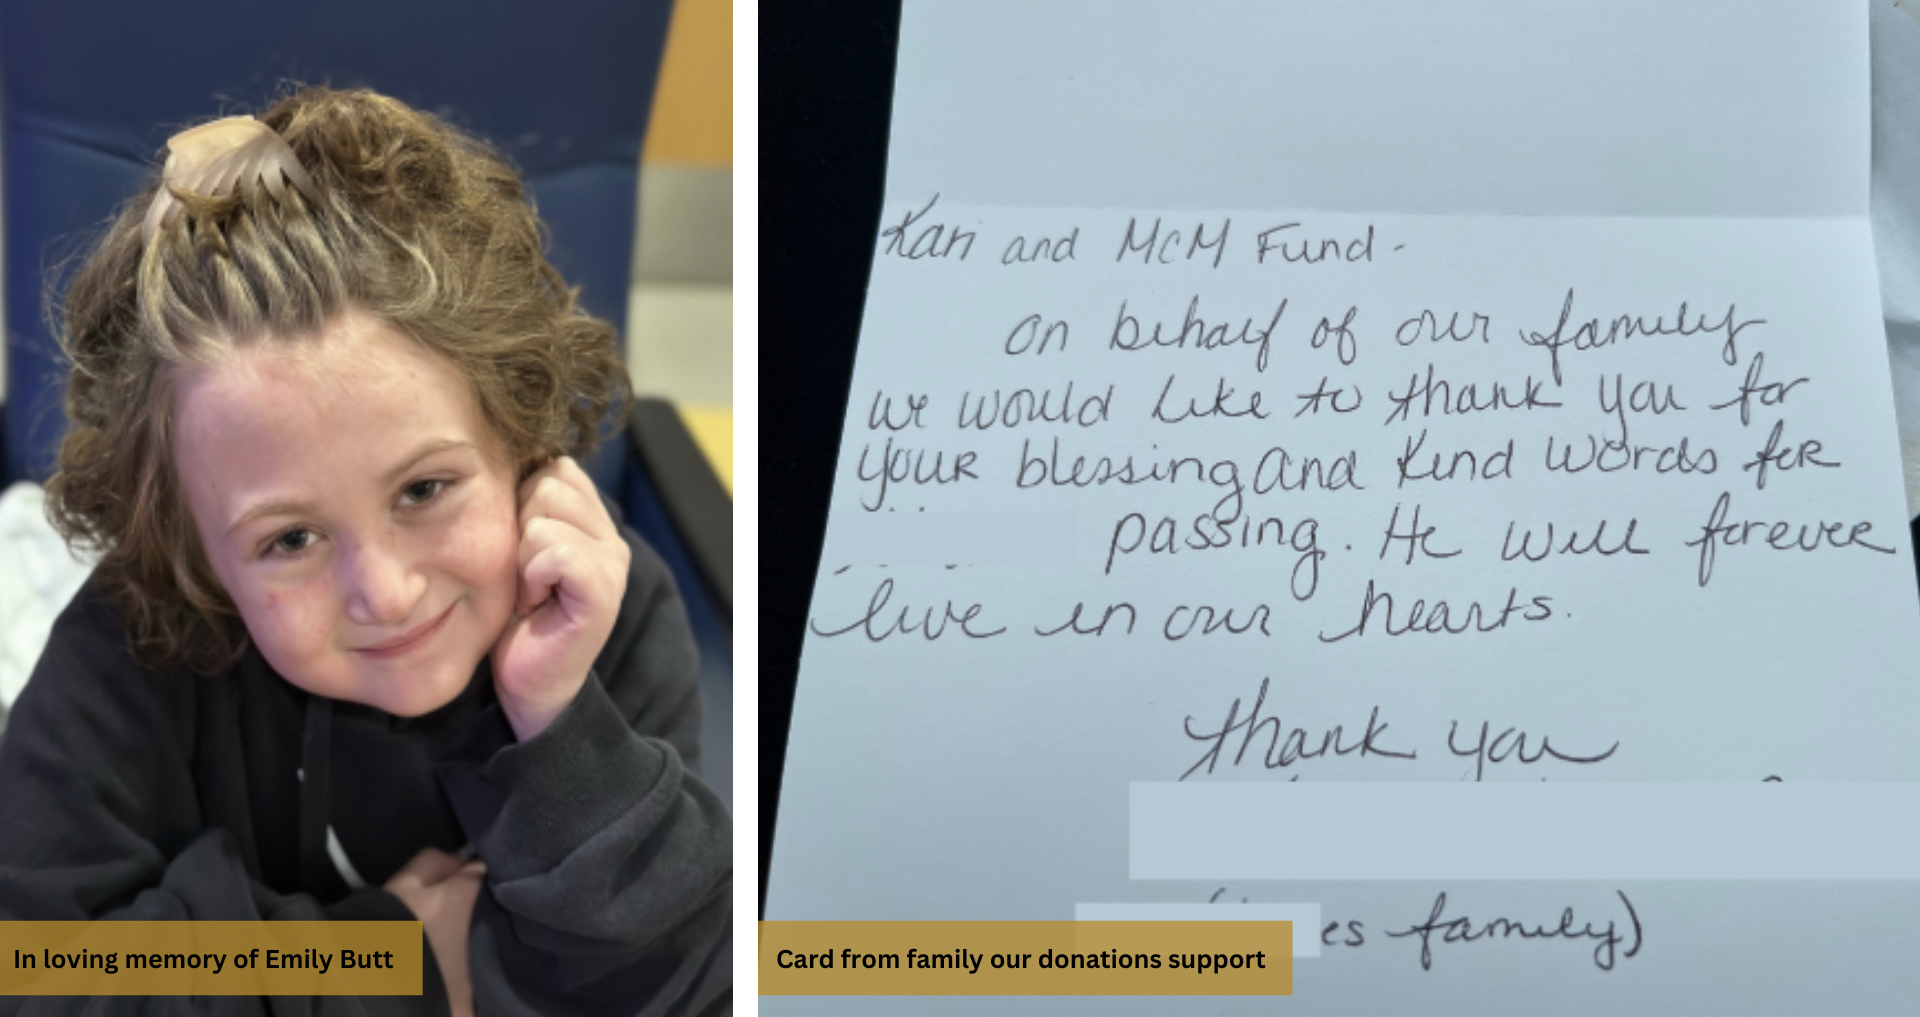 In loving memory of Emily Butt
Kari and McM Fund -
On behalf of our family
we would like to thank you for
your blessing and kind words for
passing. He will forever
live in our hearts.
Thank you
es family)
Card from family our donations support